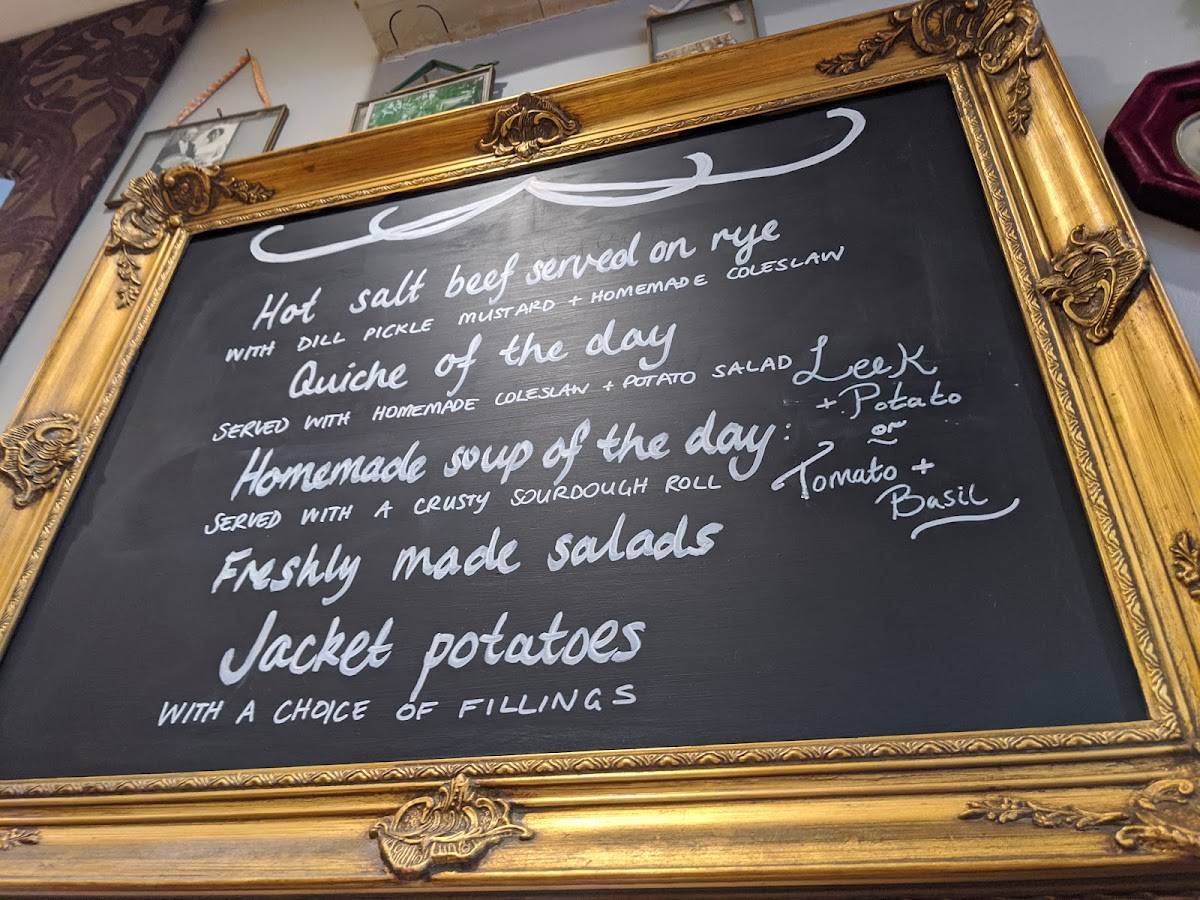 Hot salt beef served on rye
WITH DILL PICKLE MUSTARD + HOMEMADE COLESLAW
Quiche of the day
SERVED WITH HOMEMADE COLESLAW + POTATO SALAD
Homemade soup of the day:
SERVED WITH A CRUSTY SOURDOUGH ROLL
Leek
+ Potato
or
Tomato +
Basil
Freshly made salads
Jacket potatoes
WITH A CHOICE OF FILLINGS